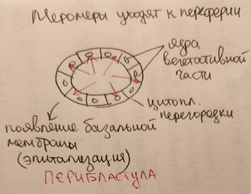 Меромеры уходят к переферии
ядра
вегетативной
части
цитопл.
перегородки
появление базальной
мембраны
(эпитализация)
ПЕРИБЛАСТУЛА